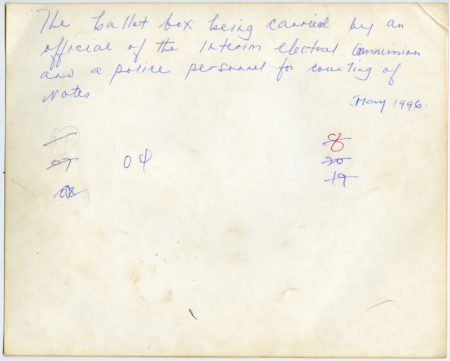 The ballot box being carried by an
official of the Interim electral Commission
and a police personnel for counting of
Votes
May 1996.
8
07 04 20
08 19